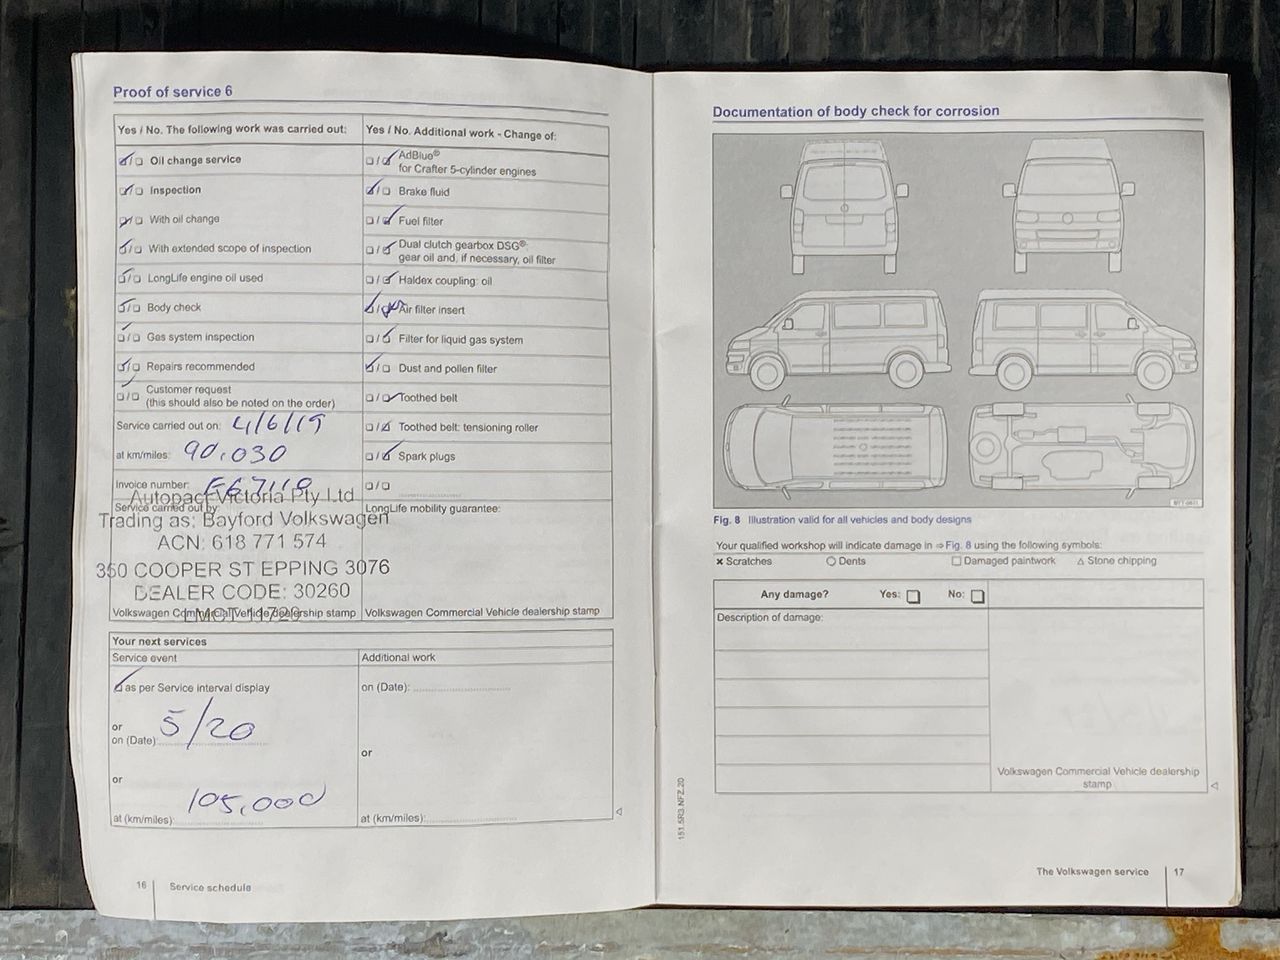 Proof of service 6
Yes / No. The following work was carried out:
Oil change service
Inspection
With oil change
With extended scope of inspection
LongLife engine oil used
Body check
Gas system inspection
Repairs recommended
Customer request
(this should also be noted on the order)
Service carried out on: 4/6/19
at km/miles: 90,030
Invoice number:
Service carried out by:
Autopact Victoria Pty Ltd
Trading as: Bayford Volkswagen
ACN: 618 771 574
350 COOPER ST EPPING 3076
DEALER CODE: 30260
LMCT 11729
Volkswagen Commercial Vehicle dealership stamp
Yes / No. Additional work - Change of:
AdBlue®
for Crafter 5-cylinder engines
Brake fluid
Fuel filter
Dual clutch gearbox DSG®:
gear oil and, if necessary, oil filter
Haldex coupling: oil
Air filter insert
Filter for liquid gas system
Dust and pollen filter
Toothed belt
Toothed belt: tensioning roller
Spark plugs
LongLife mobility guarantee:
Volkswagen Commercial Vehicle dealership stamp
Your next services
Service event
as per Service interval display
or
on (Date): 5/20
or
at (km/miles): 105,000
Additional work
on (Date):
or
at (km/miles):
16 Service schedule
Documentation of body check for corrosion
Fig. 8 Illustration valid for all vehicles and body designs
Your qualified workshop will indicate damage in ⇒ Fig. 8 using the following symbols:
× Scratches ○ Dents □ Damaged paintwork △ Stone chipping
Any damage? Yes: No:
Description of damage:
Volkswagen Commercial Vehicle dealership
stamp
151.5R3.NFZ.20
The Volkswagen service 17